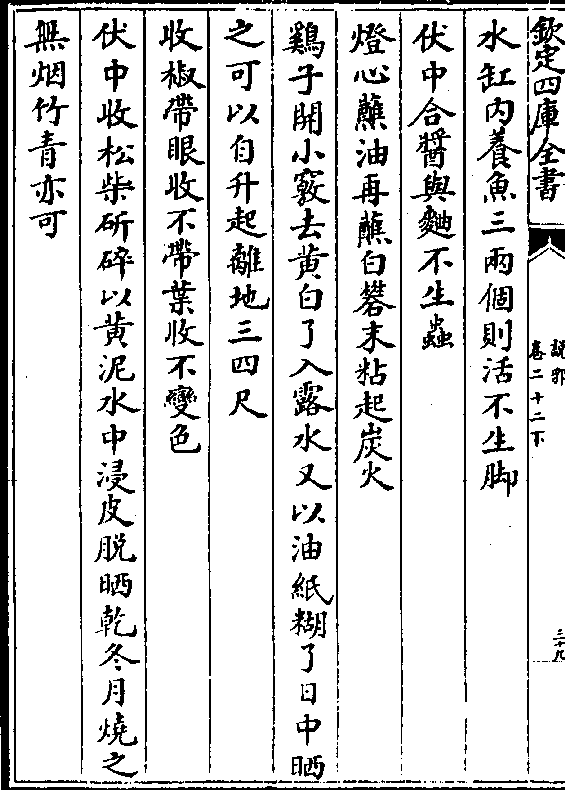 欽定四庫全書
說郛
卷二十二下
三十九
水缸内養魚三兩個則活不生脚
伏中合醬與麯不生蟲
燈心蘸油再蘸白礬末粘起炭火
鷄子開小竅去黄白了入露水又以油紙糊了日中晒
之可以自升起離地三四尺
收椒帶眼收不帶葉收不變色
伏中收松柴斫碎以黄泥水中浸皮脱晒乾冬月燒之
無烟竹青亦可